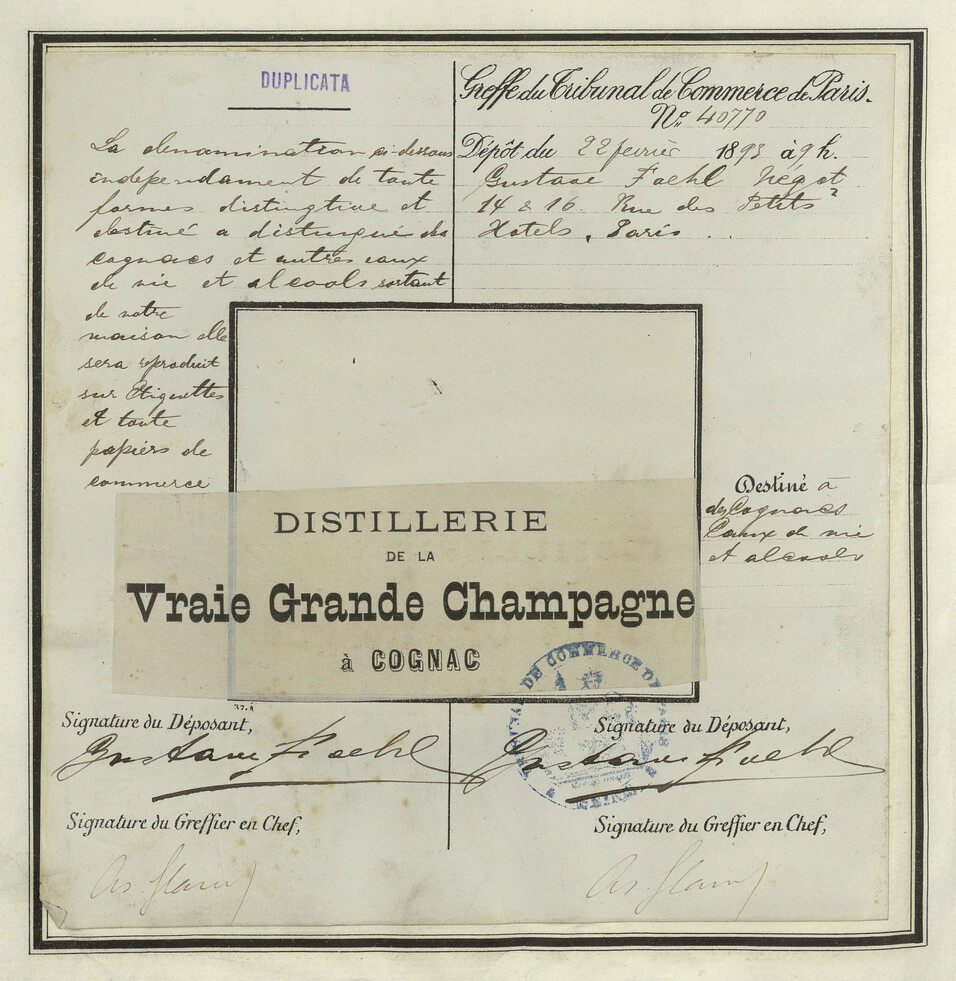 DUPLICATA
La denamination ci-dessous
independament de toute
formes distingtive et
destiné a distingué des
cognacs et autres eaux
de vie et alcools sortant
de notre
maison elle
sera reproduit
sur Etiquettes
et toute
papiers de
commerce
Greffe du Tribunal de Commerce de Paris.
No. 40770
Dépôt du 22 fevrier 1893 à 9 h.
Gustave Foehl Négot
14 & 16. Rue des Petits
Hotels, Paris.
Destiné a
des Cognacs
Eaux de vie
et alcools
DISTILLERIE
DE LA
Vraie Grande Champagne
à COGNAC
TRIBUNAL DE COMMERCE DE PARIS
SEINE
Signature du Déposant,
Gustave Foehl
Signature du Greffier en Chef,
Signature du Déposant,
Gustave Foehl
Signature du Greffier en Chef,